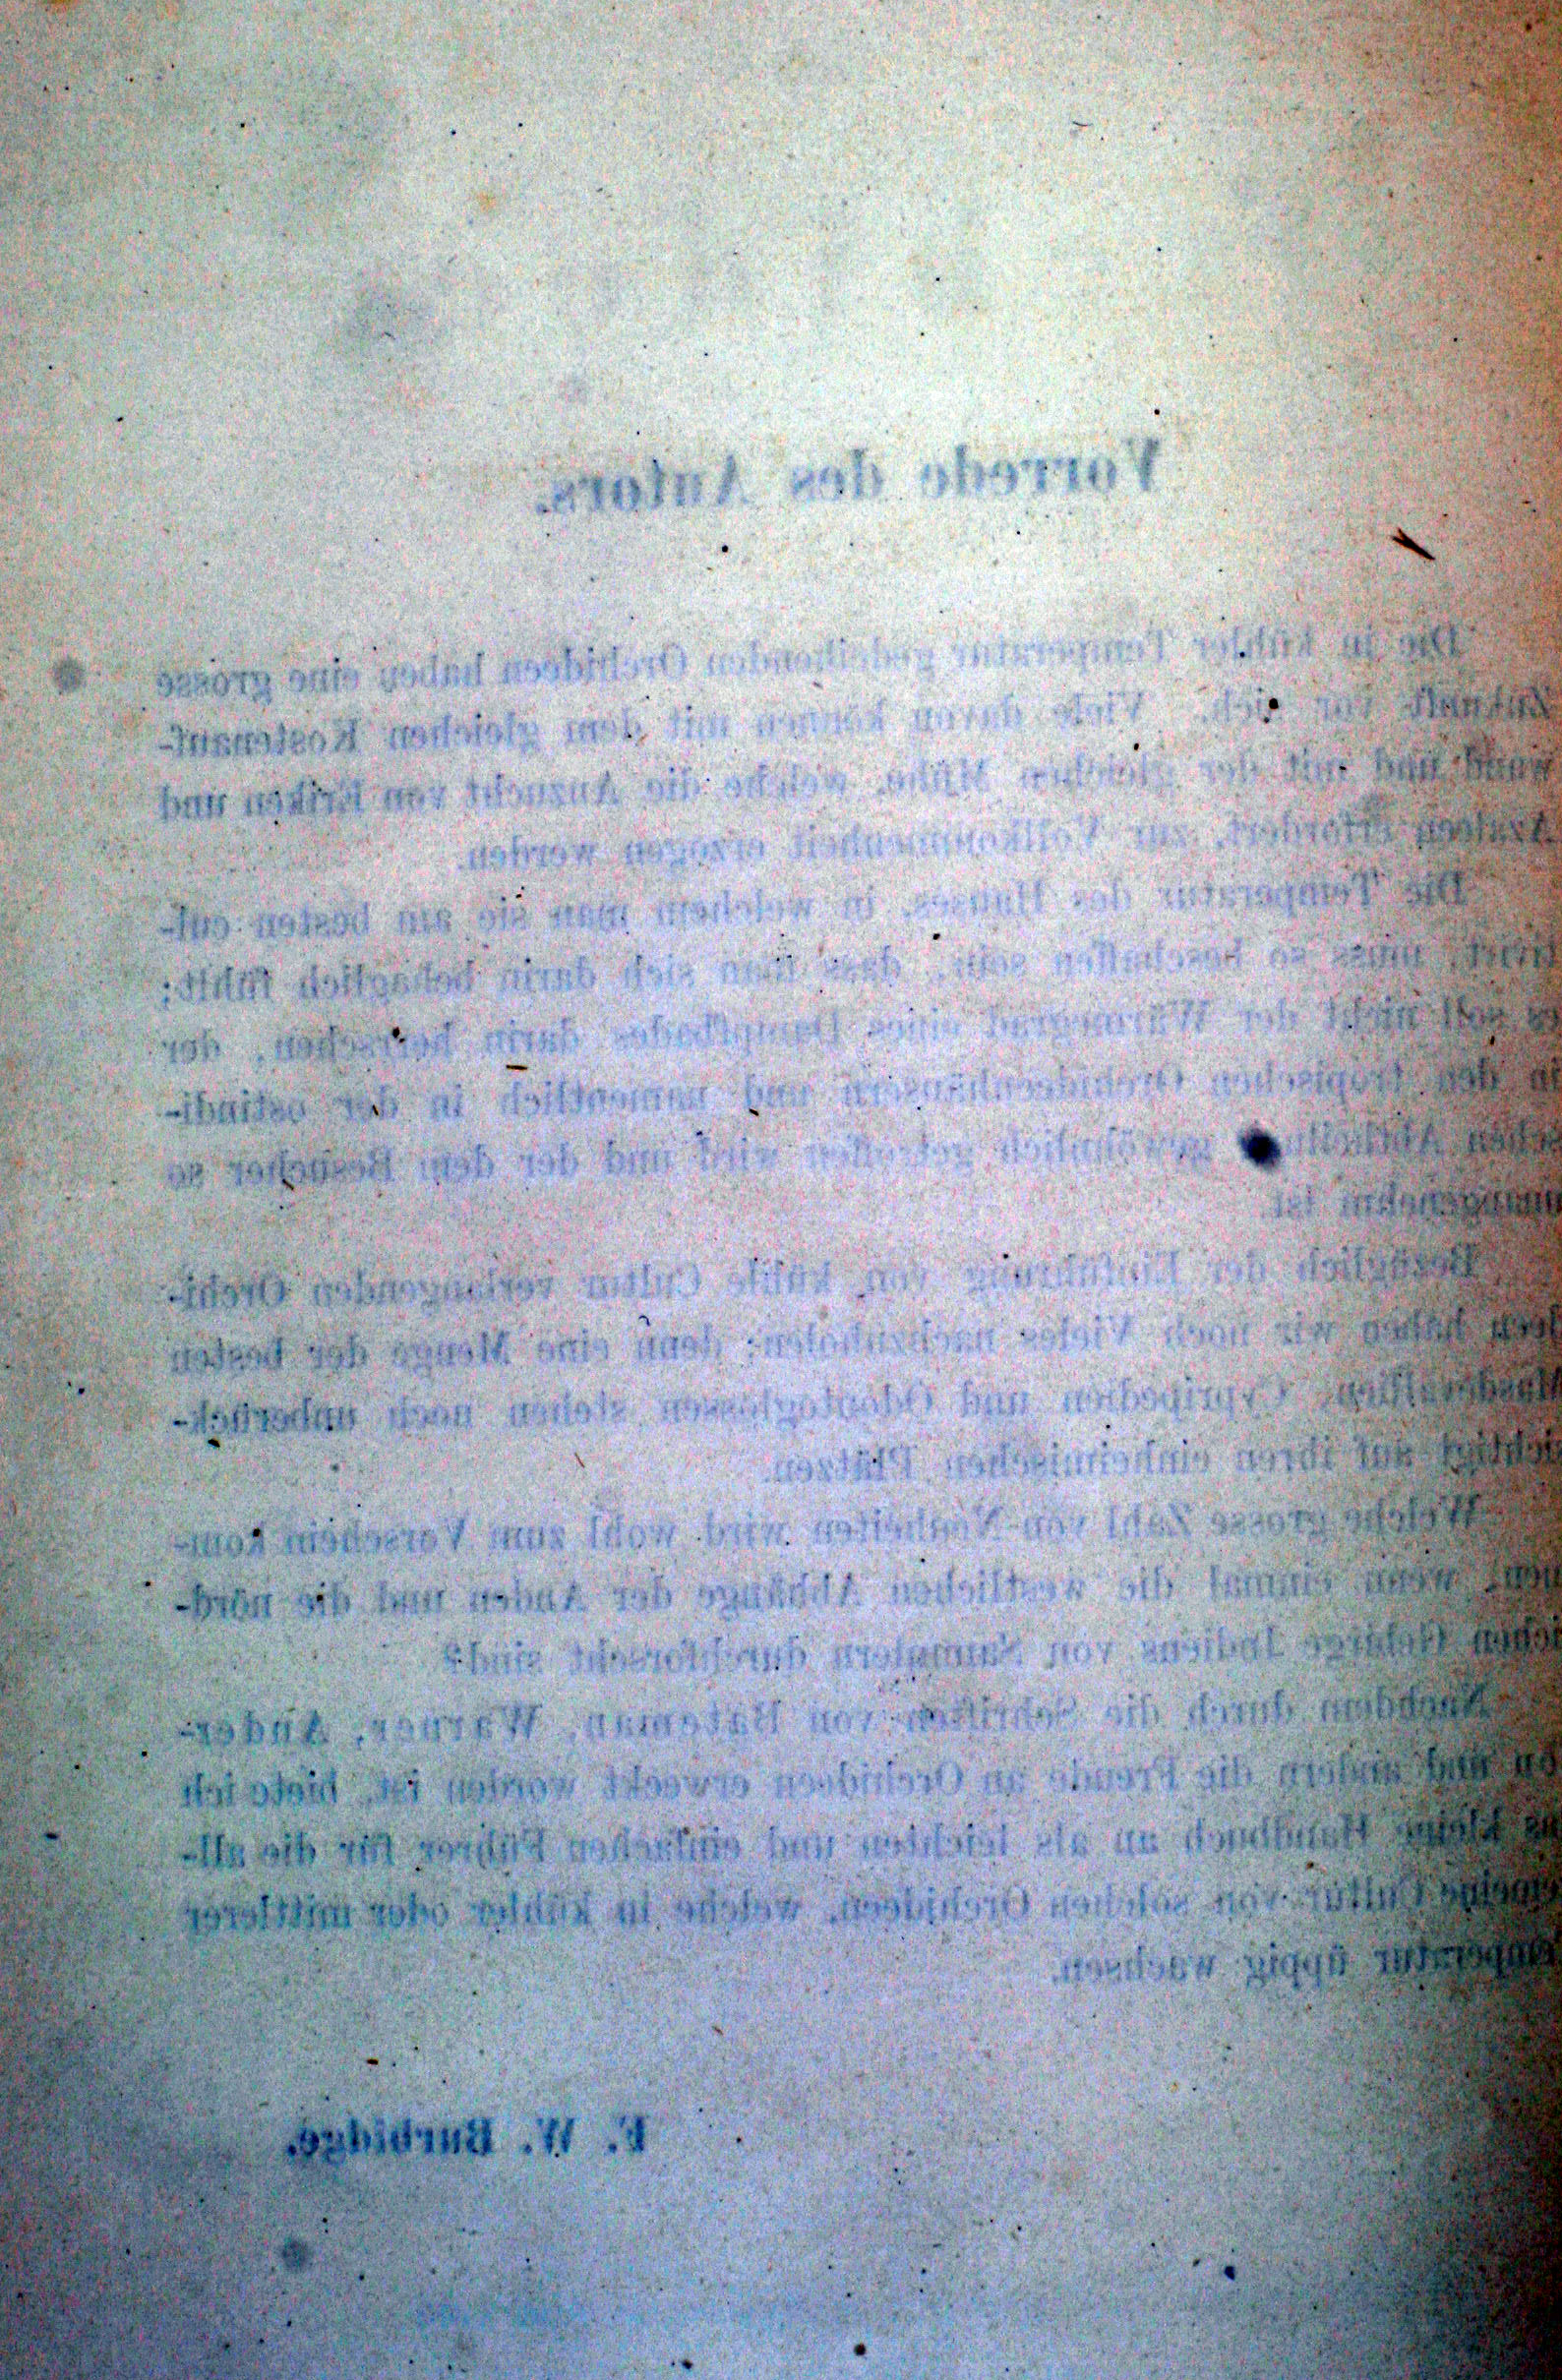 Vorrede des Autors.
Die in kühler Temperatur gedeihenden Orchideen haben eine grosse
Zukunft vor sich. Viele davon können mit dem gleichen Kostenauf-
wand und mit der gleichen Mühe, welche die Anzucht von Eriken und
Azaleen erfordert, zur Vollkommenheit erzogen werden.
Die Temperatur des Hauses, in welchem man sie am besten cul-
tivirt, muss so beschaffen sein, dass man sich darin behaglich fühlt;
es soll nicht der Wärmegrad eines Dampfbades darin herrschen, der
in den tropischen Orchideenhäusern und namentlich in der ostindi-
schen gewöhnlich getroffen wird und der dem Besucher so
unangenehm ist.
Bezüglich der Einführung von kühle Cultur verlangenden Orchi-
deen haben wir noch Vieles nachzuholen; denn eine Menge der besten
Masdevallien, Cypripedien und Odontoglossen stehen noch unberück-
sichtigt auf ihren einheimischen Plätzen.
Welche grosse Zahl von Neuheiten wird wohl zum Vorschein kom-
men, wenn einmal die westlichen Abhänge der Anden und die nörd-
lichen Gebirge Indiens von Sammlern durchforscht sind?
Nachdem durch die Schriften von Bateman, Warner, Ander-
son und andern die Freude an Orchideen erweckt worden ist, biete ich
kleine Handbuch an als leichten und einfachen Führer für die all-
gemeine Cultur von solchen Orchideen, welche in kühler oder mittlerer
Temperatur üppig wachsen.
F. W. Burbidge.